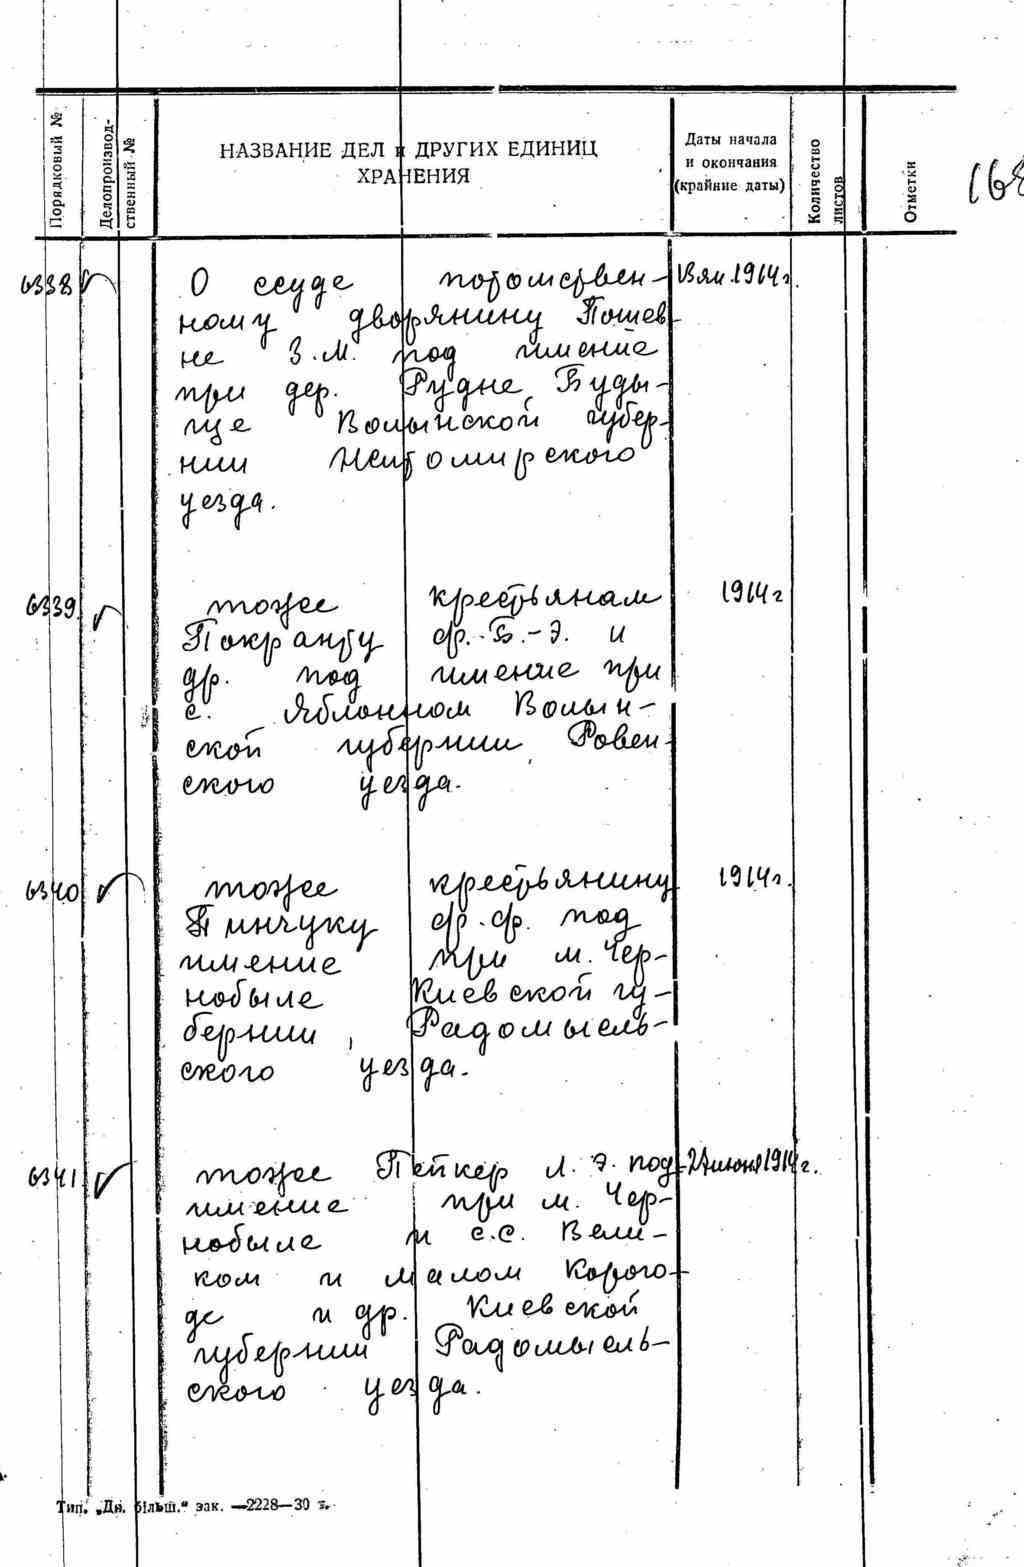 Порядковый №
Делопроизвод-
ственный №
НАЗВАНИЕ ДЕЛ и ДРУГИХ ЕДИНИЦ
ХРАНЕНИЯ
Даты начала
и окончания
(крайние даты)
Количество
листов
Отметки
168
6338 О ссуде потомствен- 13 ян. 1914 г.
ному дворянину Пошев
не З.М. под имение
при дер. Рудне, Буды-
ще Волынской губер-
нии Житомирского
уезда.
6339 тоже крестьянам 1914 г
Покранту Ф.-Б.-Э. и
др. под имение при
с. Яблонном Волын-
ской губернии, Ровен-
ского уезда.
6340 тоже крестьянину 1914 г.
Пинчуку Ф.Ф. под
имение при м. Чер-
нобыле Киевской гу-
бернии, Радомысль-
ского уезда.
6341 тоже Пейкер Л.Э. под июня 1914 г.
имение при м. Чер-
нобыле и с.с. Вели-
ком и Малом Корого-
де и др. Киевской
губернии Радомысль-
ского уезда.
Тип. „Дн. більш." зак. —2228—30 т.